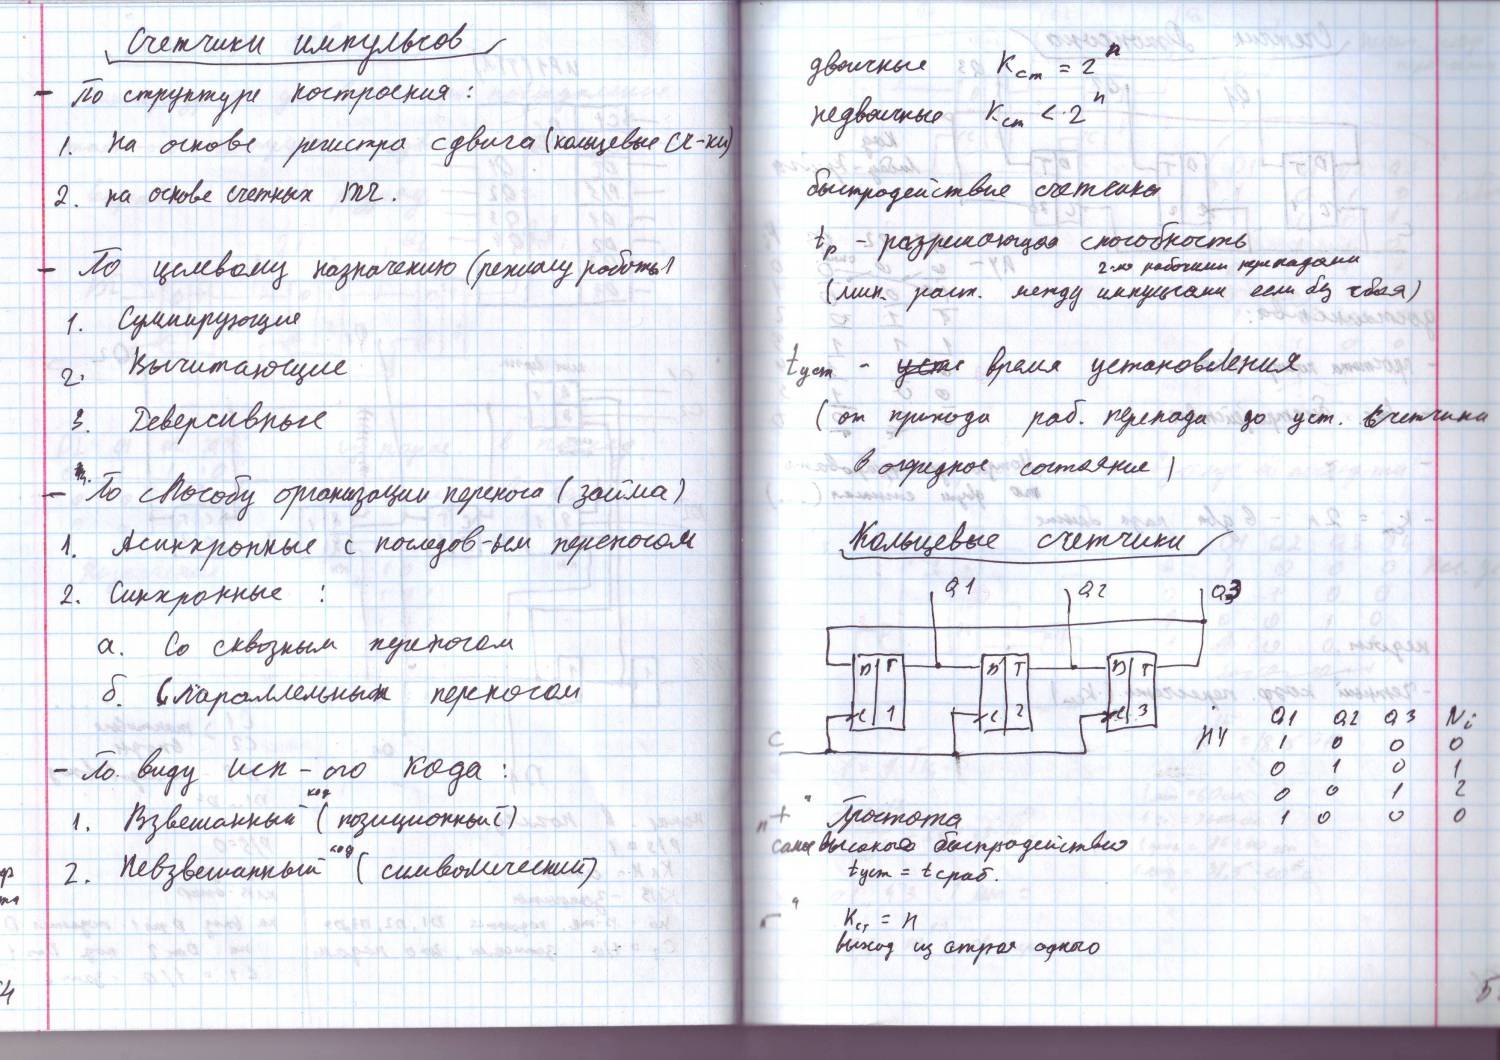 Счетчики импульсов
- По структуре построения:
1. На основе регистра сдвига (кольцевые сч-ки)
2. на основе счетных тг.
- По целевому назначению (режиму работы)
1. Суммирующие
2. Вычитающие
3. Реверсивные
- По способу организации переноса (займа)
1. Асинхронные с последов-ым переносом
2. Синхронные :
а. Со сквозным переносом
б. С параллельным переносом
- По виду исп-ого кода :
1. Взвешанный код (позиционный)
2. Невзвешанный код (символический)
двоичные Kст = 2^n
недвоичные Kст < 2^n
быстродействие счетчика
tр - разрешающая способность
2-мя рабочими перепадами
(мин. раст. между импульсами если без сбоя)
tуст - время установления
(от прихода раб. перепада до уст. счетчика
в очередное состояние)
Кольцевые счетчики
Q1 Q2 Q3
D T D T D T
C 1 C 2 C 3
C
Q1 Q2 Q3 Ni
НУ 1 0 0 0
0 1 0 1
0 0 1 2
1 0 0 0
"+" Простота
самое высокое быстродействие
tуст = tсраб.
"-" Kст = n
выход из строя одного
54